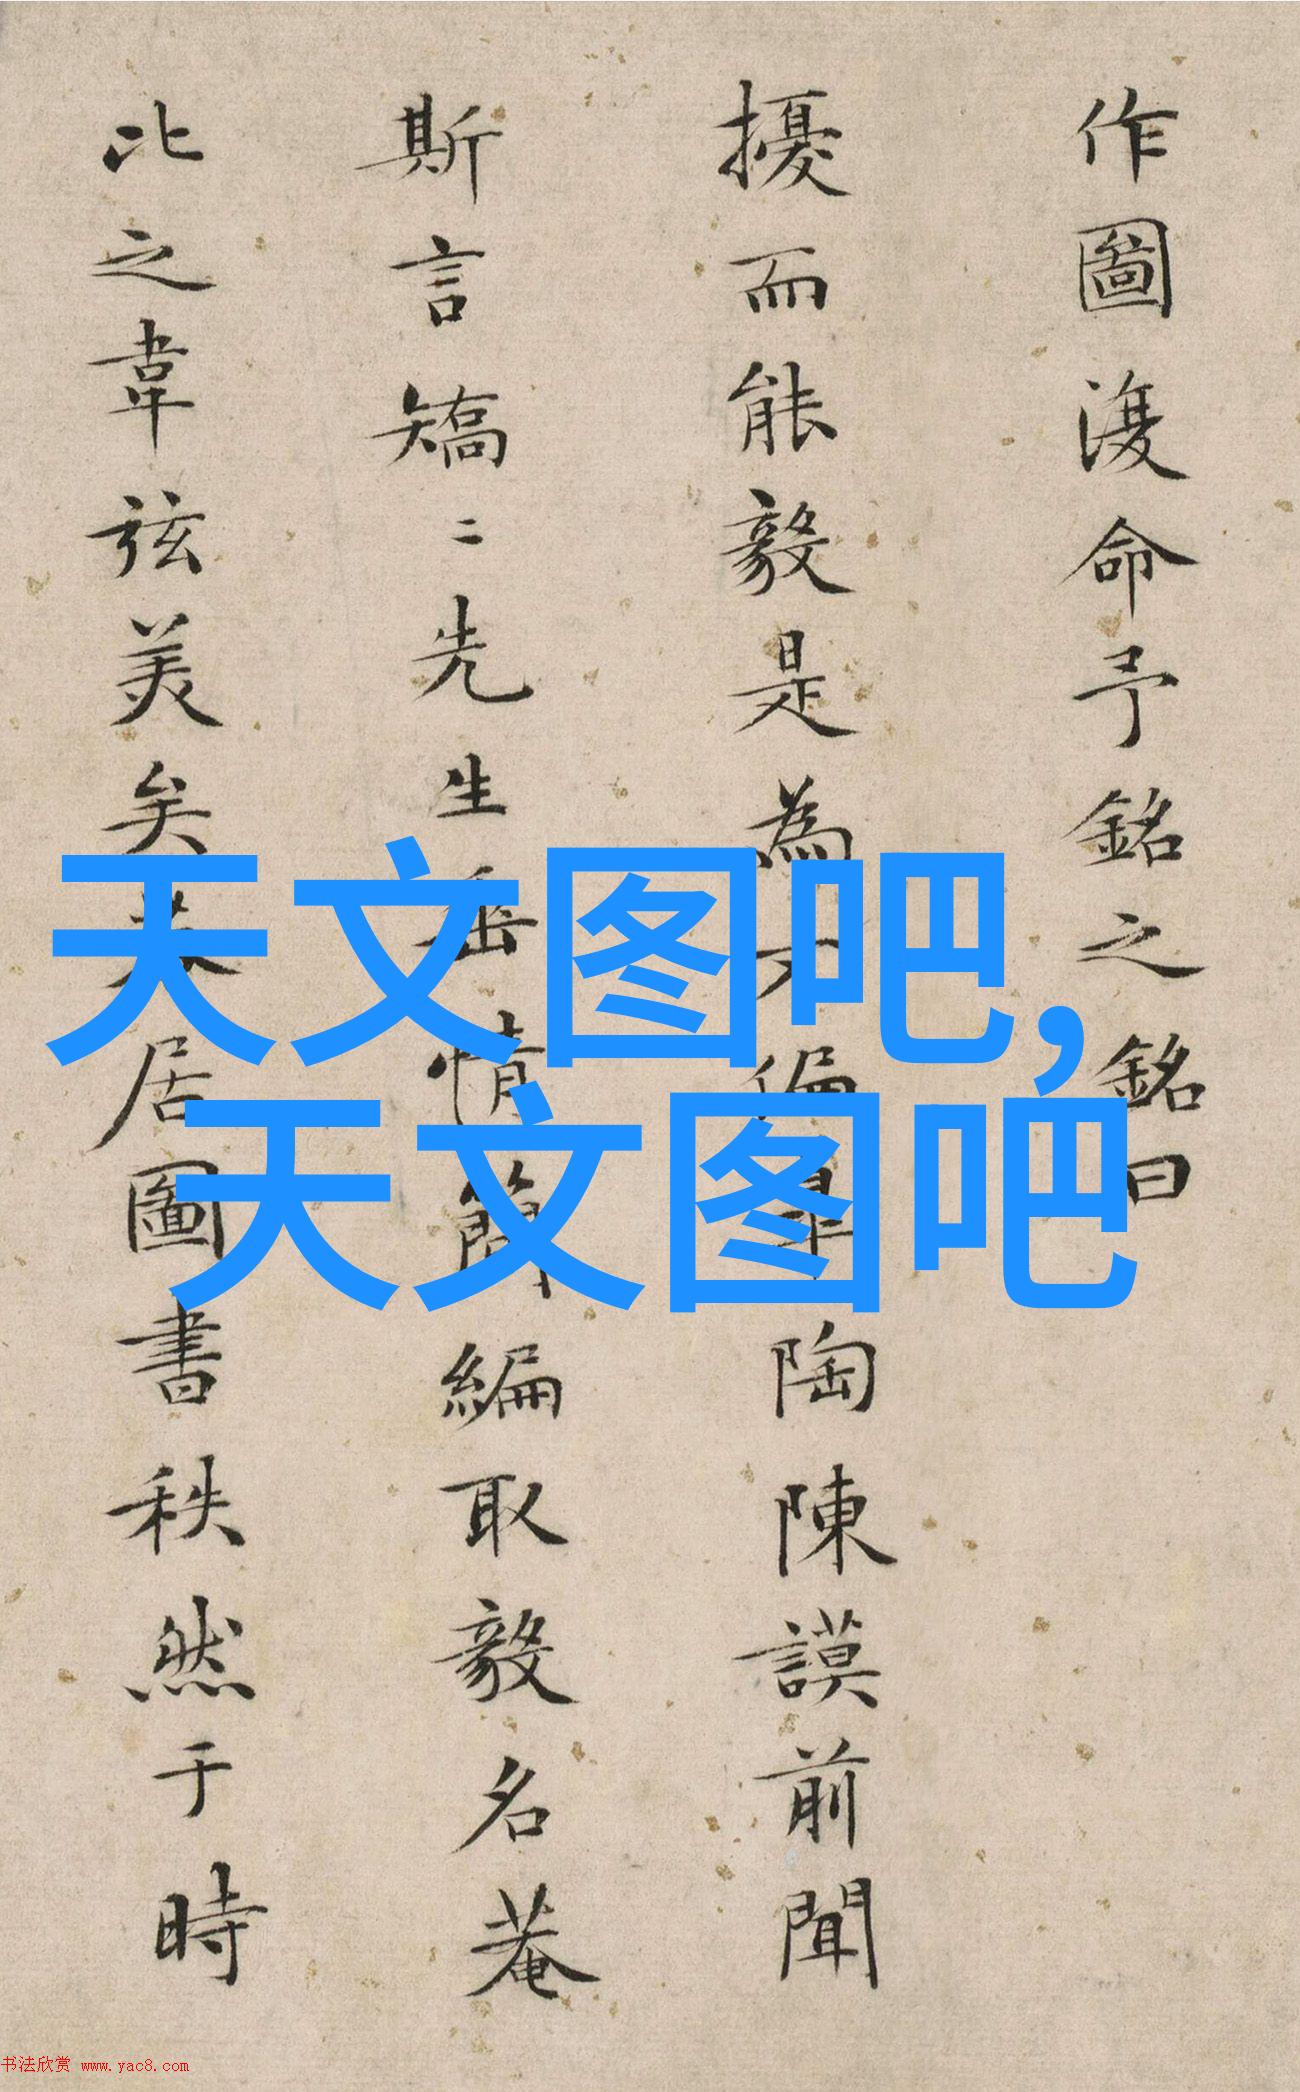 作圖復命予銘之銘曰
擾而能毅是為不偏皋陶陳謨前聞
斯言矯二先生岳情簡編取毅名菴
比之韋弦美矣居圖書秩然于時
天文图吧,
天文图吧
书法欣赏 www.yac8.com